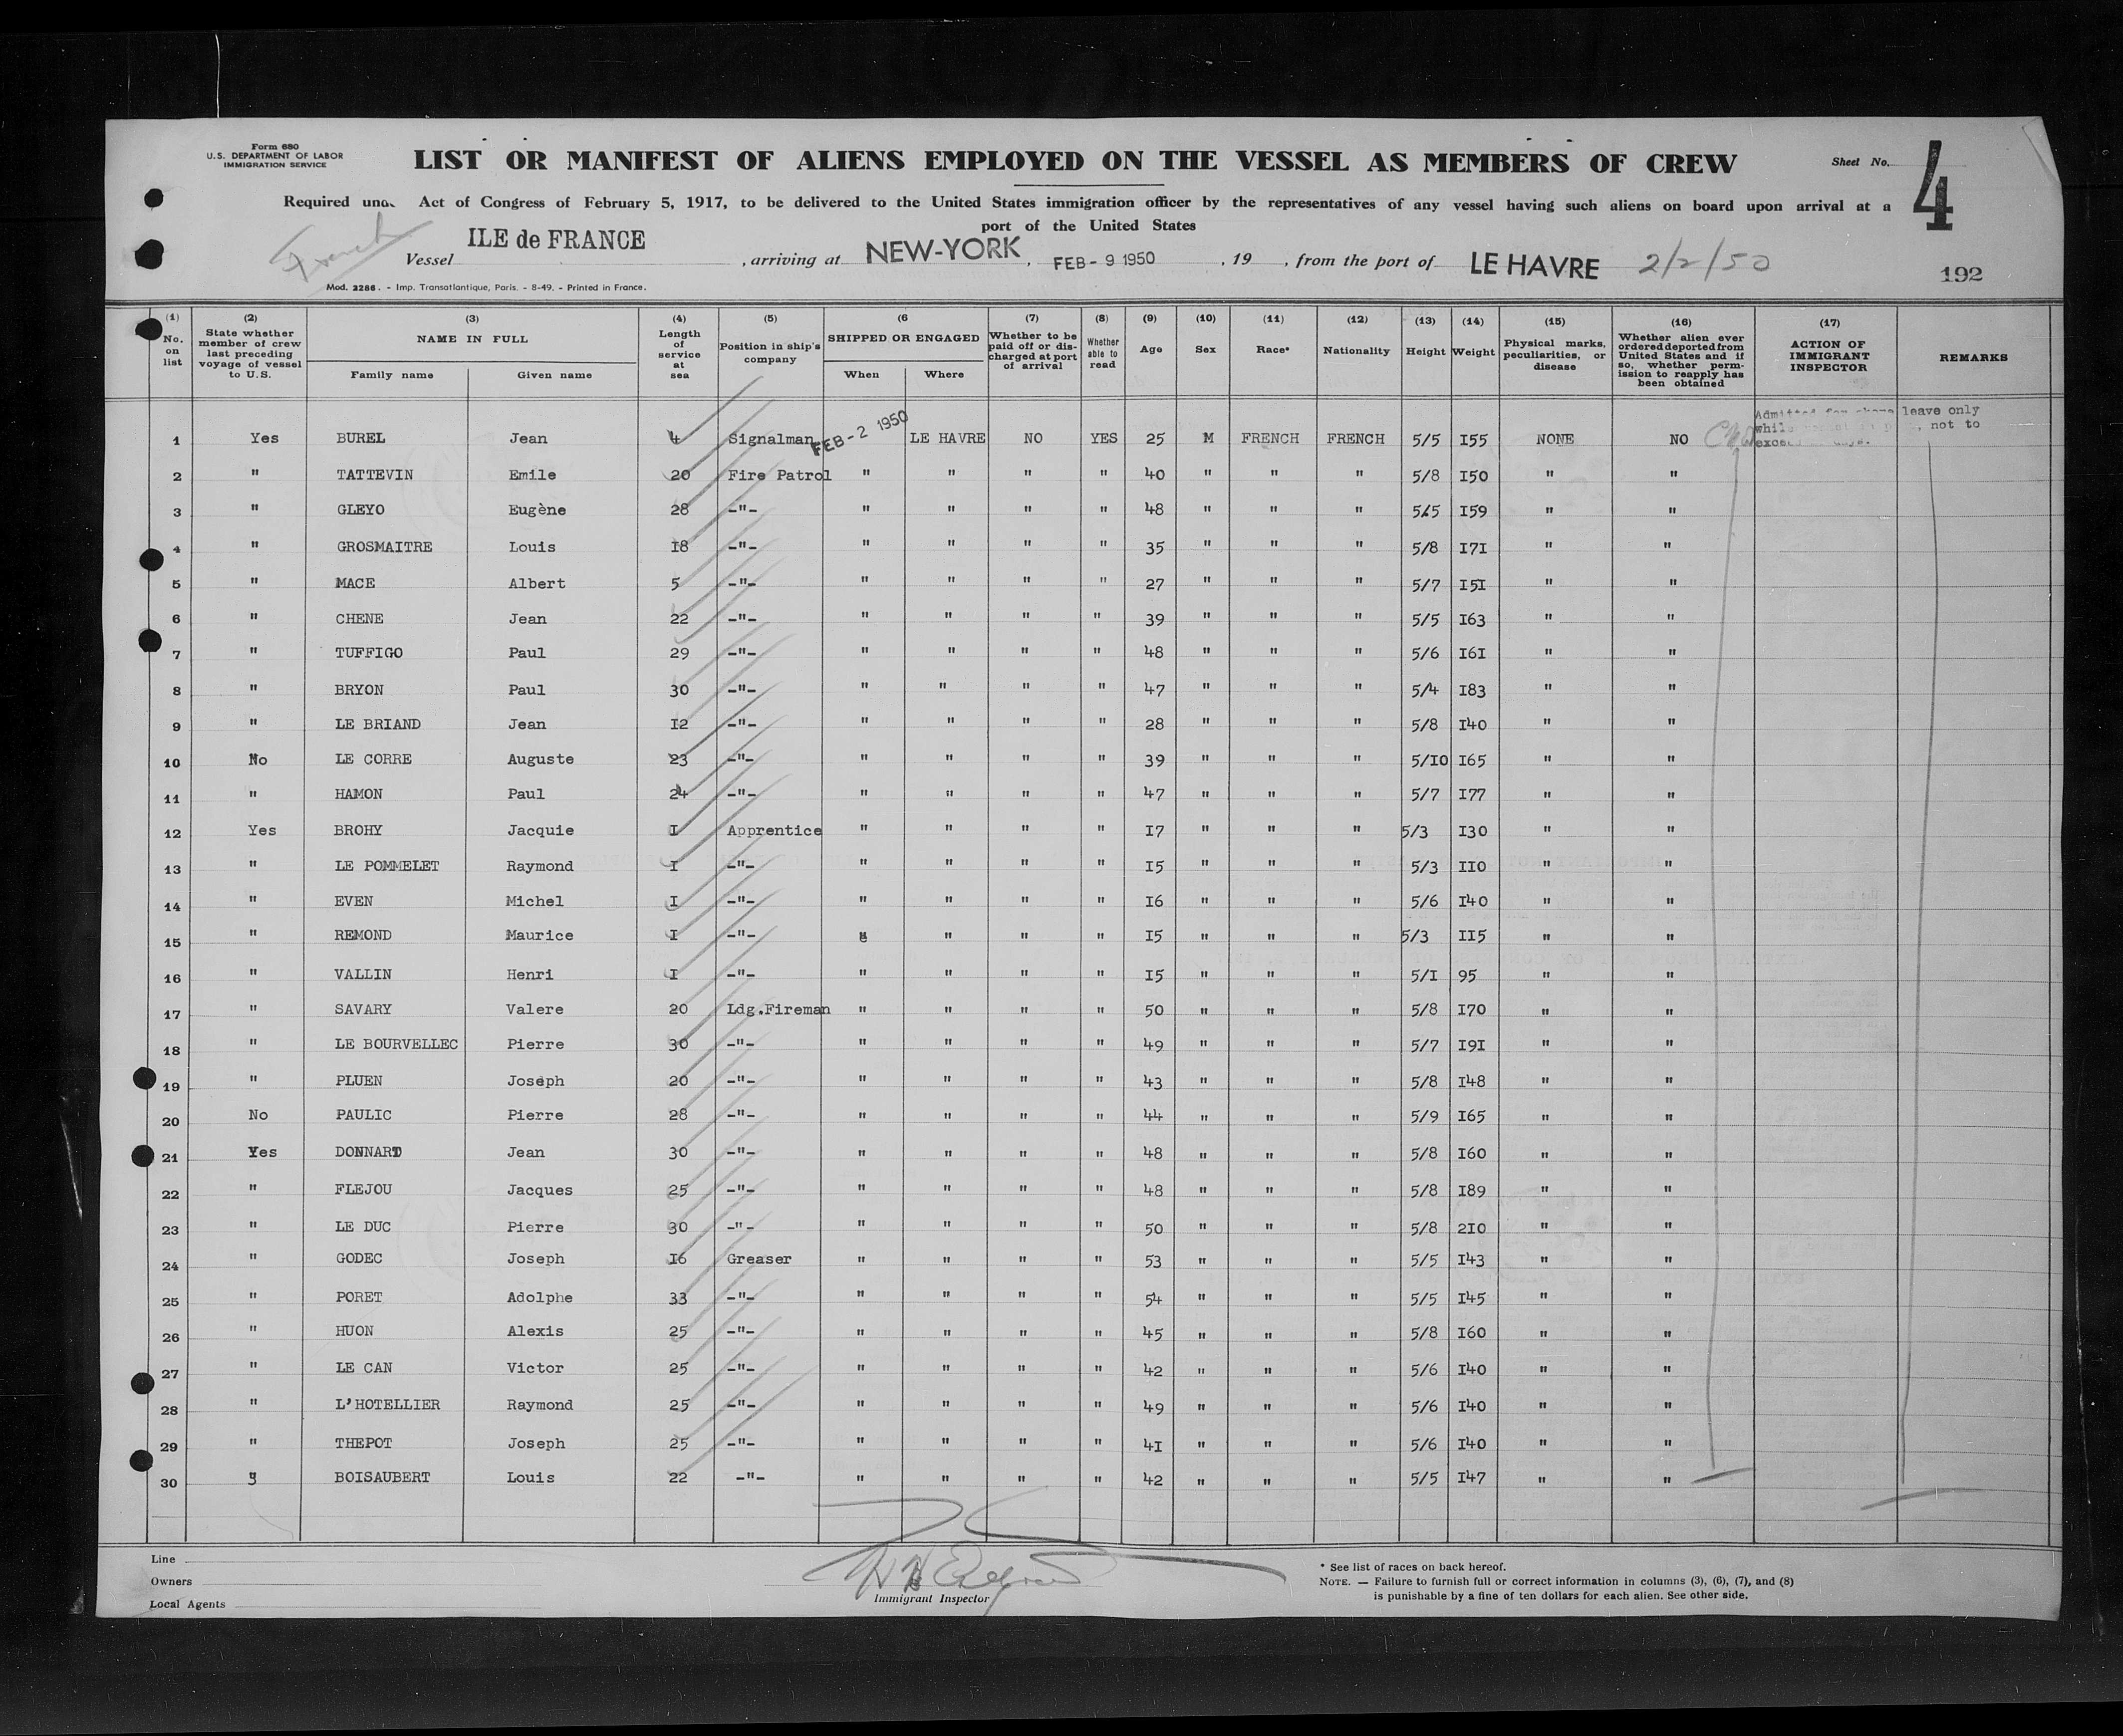 Form 680
U.S. DEPARTMENT OF LABOR
IMMIGRATION SERVICE
LIST OR MANIFEST OF ALIENS EMPLOYED ON THE VESSEL AS MEMBERS OF CREW
Sheet No. 4
Required Act of Congress of February 5, 1917, to be delivered to the United States immigration officer by the representatives of any vessel having such aliens on board upon arrival at a
port of the United States
French
Vessel ILE de FRANCE, arriving at NEW-YORK, FEB-9 1950, 19 , from the port of LE HAVRE 2/2/50
192
Mod. 2286. - Imp. Transatlantique, Paris. - 8-49. - Printed in France.
(1) No. on list (2) State whether member of crew last preceding voyage of vessel to U.S. (3) NAME IN FULL Family name Given name (4) Length of service at sea (5) Position in ship's company (6 SHIPPED OR ENGAGED When Where (7) Whether to be paid off or discharged at port of arrival (8) Whether able to read (9) Age (10) Sex (11) Race* (12) Nationality (13) Height (14) Weight (15) Physical marks, peculiarities, or disease (16) Whether alien ever ordered deported from United States and if so, whether permission to reapply has been obtained (17) ACTION OF IMMIGRANT INSPECTOR REMARKS
Admitted for shore leave only
not to
1 Yes BUREL Jean 4 Signalman FEB-2 1950 LE HAVRE NO YES 25 M FRENCH FRENCH 5/5 I55 NONE NO
2 " TATTEVIN Emile 20 Fire Patrol " " " " 40 " " " 5/8 I50 " "
3 " GLEYO Eugène 28 -"- " " " " 48 " " " 5/5 I59 " "
4 " GROSMAITRE Louis I8 -"- " " " " 35 " " " 5/8 I7I " "
5 " MACE Albert 5 -"- " " " " 27 " " " 5/7 I5I " "
6 " CHENE Jean 22 -"- " " " " 39 " " " 5/5 I63 " "
7 " TUFFIGO Paul 29 -"- " " " " 48 " " " 5/6 I6I " "
8 " BRYON Paul 30 -"- " " " " 47 " " " 5/4 I83 " "
9 " LE BRIAND Jean I2 -"- " " " " 28 " " " 5/8 I40 " "
10 No LE CORRE Auguste 23 -"- " " " " 39 " " " 5/I0 I65 " "
11 " HAMON Paul 24 -"- " " " " 47 " " " 5/7 I77 " "
12 Yes BROHY Jacquie I Apprentice " " " " I7 " " " 5/3 I30 " "
13 " LE POMMELET Raymond I -"- " " " " I5 " " " 5/3 II0 " "
14 " EVEN Michel I -"- " " " " I6 " " " 5/6 I40 " "
15 " REMOND Maurice I -"- " " " I5 " " " 5/3 II5 " "
16 " VALLIN Henri I -"- " " " " I5 " " " 5/I 95 " "
17 " SAVARY Valere 20 Ldg.Fireman " " " " 50 " " " 5/8 I70 " "
18 " LE BOURVELLEC Pierre 30 -"- " " " " 49 " " " 5/7 I9I " "
19 " PLUEN Joseph 20 -"- " " " " 43 " " " 5/8 I48 " "
20 No PAULIC Pierre 28 -"- " " " " 44 " " " 5/9 I65 " "
21 Yes DONNART Jean 30 -"- " " " " 48 " " " 5/8 I60 " "
22 " FLEJOU Jacques 25 -"- " " " " 48 " " " 5/8 I89 " "
23 " LE DUC Pierre 30 -"- " " " " 50 " " " 5/8 2I0 " "
24 " GODEC Joseph I6 Greaser " " " " 53 " " " 5/5 I43 " "
25 " PORET Adolphe 33 -"- " " " " 54 " " " 5/5 I45 " "
26 " HUON Alexis 25 -"- " " " " 45 " " " 5/8 I60 " "
27 " LE CAN Victor 25 -"- " " " " 42 " " " 5/6 I40 " "
28 " L'HOTELLIER Raymond 25 -"- " " " " 49 " " " 5/6 I40 " "
29 " THEPOT Joseph 25 -"- " " " " 4I " " " 5/6 I40 " "
30 BOISAUBERT Louis 22 -"- " " " " 42 " " " 5/5 I47 " "
Line
Owners
Local Agents
Immigrant Inspector
* See list of races on back hereof.
NOTE. — Failure to furnish full or correct information in columns (3), (6), (7), and (8)
is punishable by a fine of ten dollars for each alien. See other side.